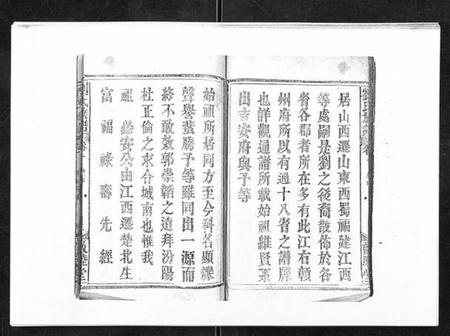 居山西遷山東西蜀福建江西
等處嗣是劉之後裔散佈於各
省各郡者所在多有此江右贛
州府所以有過十八省之譜牒
也詳觀通譜所載始祖維賢系
出吉安府與予等
始祖所居同方至今科名顯爍
聲譽蜚騰予等雖同出一源而
終不敢效郭崇韜之遠拜汾陽
杜正倫之求合城南也惟我
祖 公由江西遷楚北生
富福祿壽先經